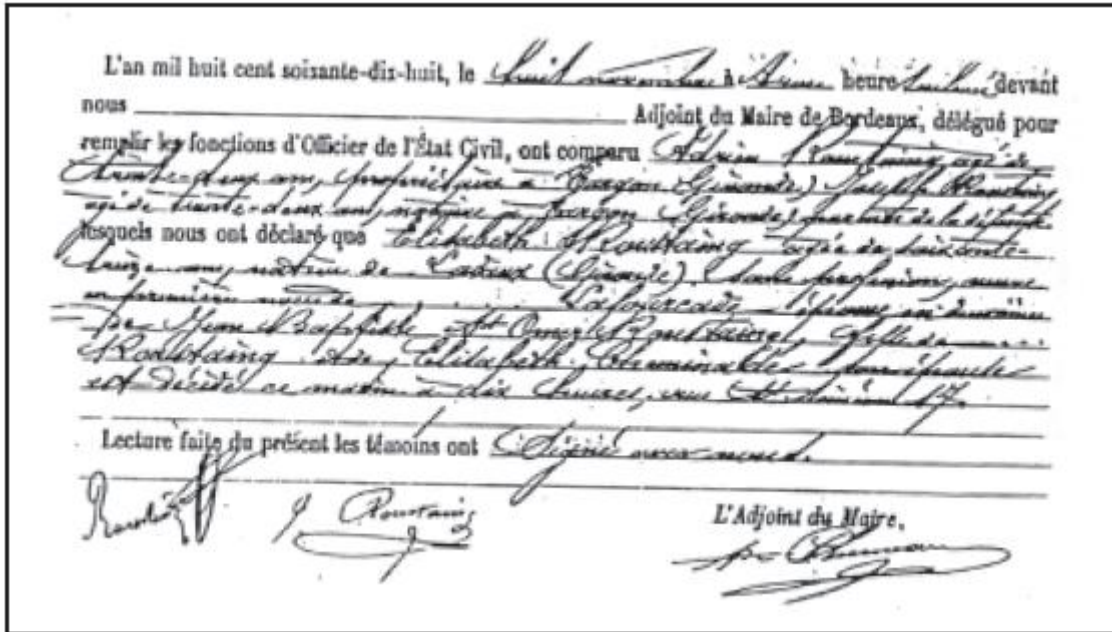 L'an mil huit cent soixante-dix-huit, le huit novembre à heure devant
nous Adjoint du Maire de Bordeaux, délégué pour
remplir les fonctions d'Officier de l'État Civil, ont comparu Adrien Roustaing agé de
trente-deux ans, propriétaire à Targon (Gironde) Joseph Roustaing
agé de trente-deux ans, notaire à Targon (Gironde) de la défunte
lesquels nous ont déclaré que Elisabeth Roustaing agée de soixante-
ans, native de (Gironde), sans profession, veuve
en premières noces de Lafourcade épouse en
de Jean Baptiste Roustaing, fille de
Roustaing et de Elisabeth
est décédé ce matin à dix heures, rue St Siméon 17.
Lecture faite du présent les témoins ont Signé avec nous.
J Roustaing
L'Adjoint du Maire,